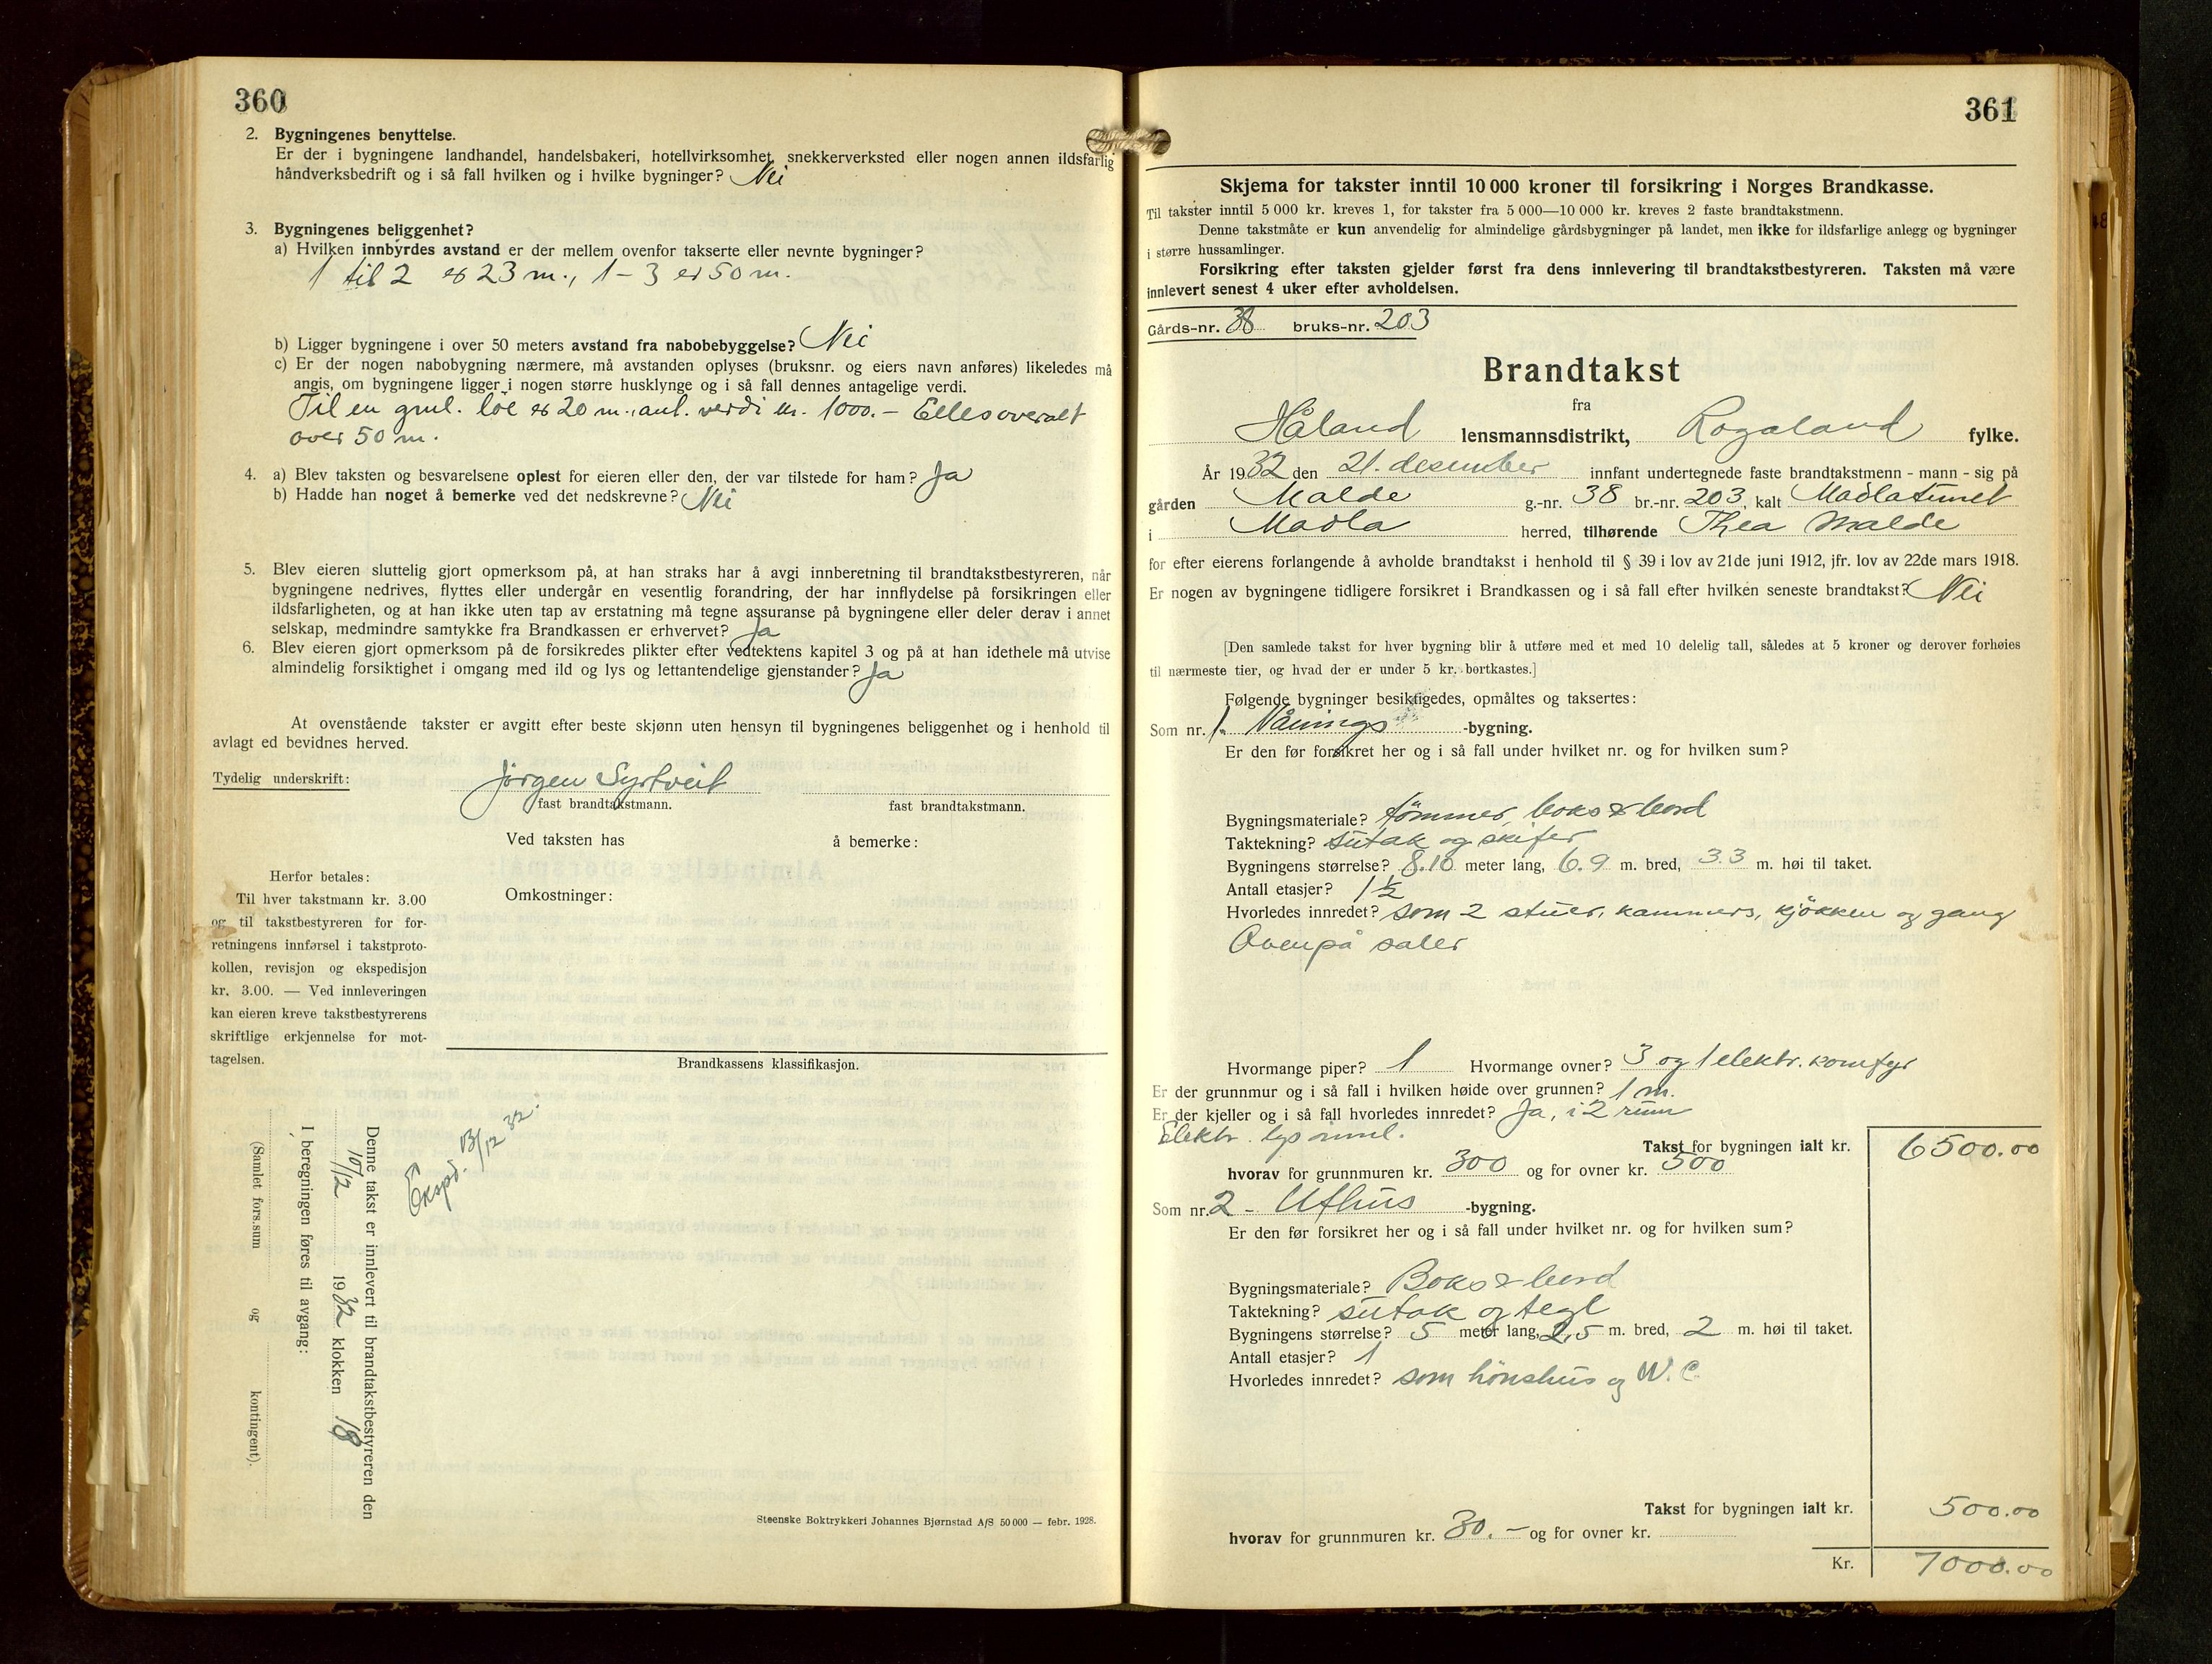 360
2. Bygningenes benyttelse.
Er der i bygningene landhandel, handelsbakeri, hotellvirksomhet, snekkerverksted eller nogen annen ildsfarlig
håndverksbedrift og i så fall hvilken og i hvilke bygninger? Nei
3. Bygningenes beliggenhet?
a) Hvilken innbyrdes avstand er der mellem ovenfor takserte eller nevnte bygninger?
1 til 2 er 23 m., 1 - 3 er 50 m.
b) Ligger bygningene i over 50 meters avstand fra nabobebyggelse? Nei
c) Er der nogen nabobygning nærmere, må avstanden oplyses (bruksnr. og eiers navn anføres) likeledes må
angis, om bygningene ligger i nogen større husklynge og i så fall dennes antagelige verdi.
Til en gml. löe er 20 m., ant. verdi kr. 1000.- Ellers overalt
over 50 m.
4. a) Blev taksten og besvarelsene oplest for eieren eller den, der var tilstede for ham? Ja
b) Hadde han noget å bemerke ved det nedskrevne? Nei
5. Blev eieren sluttelig gjort opmerksom på, at han straks har å avgi innberetning til brandtakstbestyreren, når
bygningene nedrives, flyttes eller undergår en vesentlig forandring, der har innflydelse på forsikringen eller
ildsfarligheten, og at han ikke uten tap av erstatning må tegne assuranse på bygningene eller deler derav i annet
selskap, medmindre samtykke fra Brandkassen er erhvervet? Ja
6. Blev eieren gjort opmerksom på de forsikredes plikter efter vedtektens kapitel 3 og på at han idethele må utvise
almindelig forsiktighet i omgang med ild og lys og lettantendelige gjenstander? Ja
At ovenstående takster er avgitt efter beste skjønn uten hensyn til bygningenes beliggenhet og i henhold til
avlagt ed bevidnes herved.
Tydelig underskrift: Jörgen Syrtveit
fast brandtakstmann. fast brandtakstmann.
Ved taksten has å bemerke:
Herfor betales:
Til hver takstmann kr. 3.00
og til takstbestyreren for for-
retningens innførsel i takstproto-
kollen, revisjon og ekspedisjon
kr. 3.00. — Ved innleveringen
kan eieren kreve takstbestyrerens
skriftlige erkjennelse for mot-
tagelsen.
Omkostninger:
Brandkassens klassifikasjon.
Ekspd. 13/12 32.
Denne takst er innlevert til brandtakstbestyreren den
10/12 1932 klokken 18
I beregningen føres til avgang:
(Samlet fors.sum og kontingent).
Steenske Boktrykkeri Johannes Bjørnstad A/S 50 000 — febr. 1928.
361
Skjema for takster inntil 10 000 kroner til forsikring i Norges Brandkasse.
Til takster inntil 5 000 kr. kreves 1, for takster fra 5 000—10 000 kr. kreves 2 faste brandtakstmenn.
Denne takstmåte er kun anvendelig for almindelige gårdsbygninger på landet, men ikke for ildsfarlige anlegg og bygninger
i større hussamlinger.
Forsikring efter taksten gjelder først fra dens innlevering til brandtakstbestyreren. Taksten må være
innlevert senest 4 uker efter avholdelsen.
Gårds-nr. 38 bruks-nr. 203
Brandtakst
fra
Håland lensmannsdistrikt, Rogaland fylke.
År 1932 den 21. desember innfant undertegnede faste brandtakstmenn - mann - sig på
gården Malde g.-nr. 38 br.-nr. 203, kalt Madlatunet
i Madla herred, tilhørende Thea Malde
for efter eierens forlangende å avholde brandtakst i henhold til § 39 i lov av 21de juni 1912, jfr. lov av 22de mars 1918.
Er nogen av bygningene tidligere forsikret i Brandkassen og i så fall efter hvilken seneste brandtakst? Nei
[Den samlede takst for hver bygning blir å utføre med et med 10 delelig tall, således at 5 kroner og derover forhøies
til nærmeste tier, og hvad der er under 5 kr. bortkastes.]
Følgende bygninger besiktigedes, opmåltes og taksertes:
Som nr. 1. Vånings -bygning.
Er den før forsikret her og i så fall under hvilket nr. og for hvilken sum?
Bygningsmateriale? tömmer, boks & bord
Taktekning? sutak og skifer
Bygningens størrelse? 8.10 meter lang, 6.9 m. bred, 3.3 m. høi til taket.
Antall etasjer? 1 ½
Hvorledes innredet? som 2 stuer, kammers, kjökken og gang
Ovenpå saler
Hvormange piper? 1 Hvormange ovner? 3 og 1 elektr. komfyr
Er der grunnmur og i så fall i hvilken høide over grunnen? 1 m.
Er der kjeller og i så fall hvorledes innredet? Ja, i 2 rum
Elektr. lys innl.
Takst for bygningen ialt kr. 6500.00
hvorav for grunnmuren kr. 300 og for ovner kr. 500
Som nr. 2 - Uthus -bygning.
Er den før forsikret her og i så fall under hvilket nr. og for hvilken sum?
Bygningsmateriale? Boks & bord
Taktekning? sutak og tegl
Bygningens størrelse? 5 meter lang, 2,5 m. bred, 2 m. høi til taket.
Antall etasjer? 1
Hvorledes innredet? som hönshus og W.C.
Takst for bygningen ialt kr. 500.00
hvorav for grunnmuren kr. 30.- og for ovner kr.
Kr. 7000.00